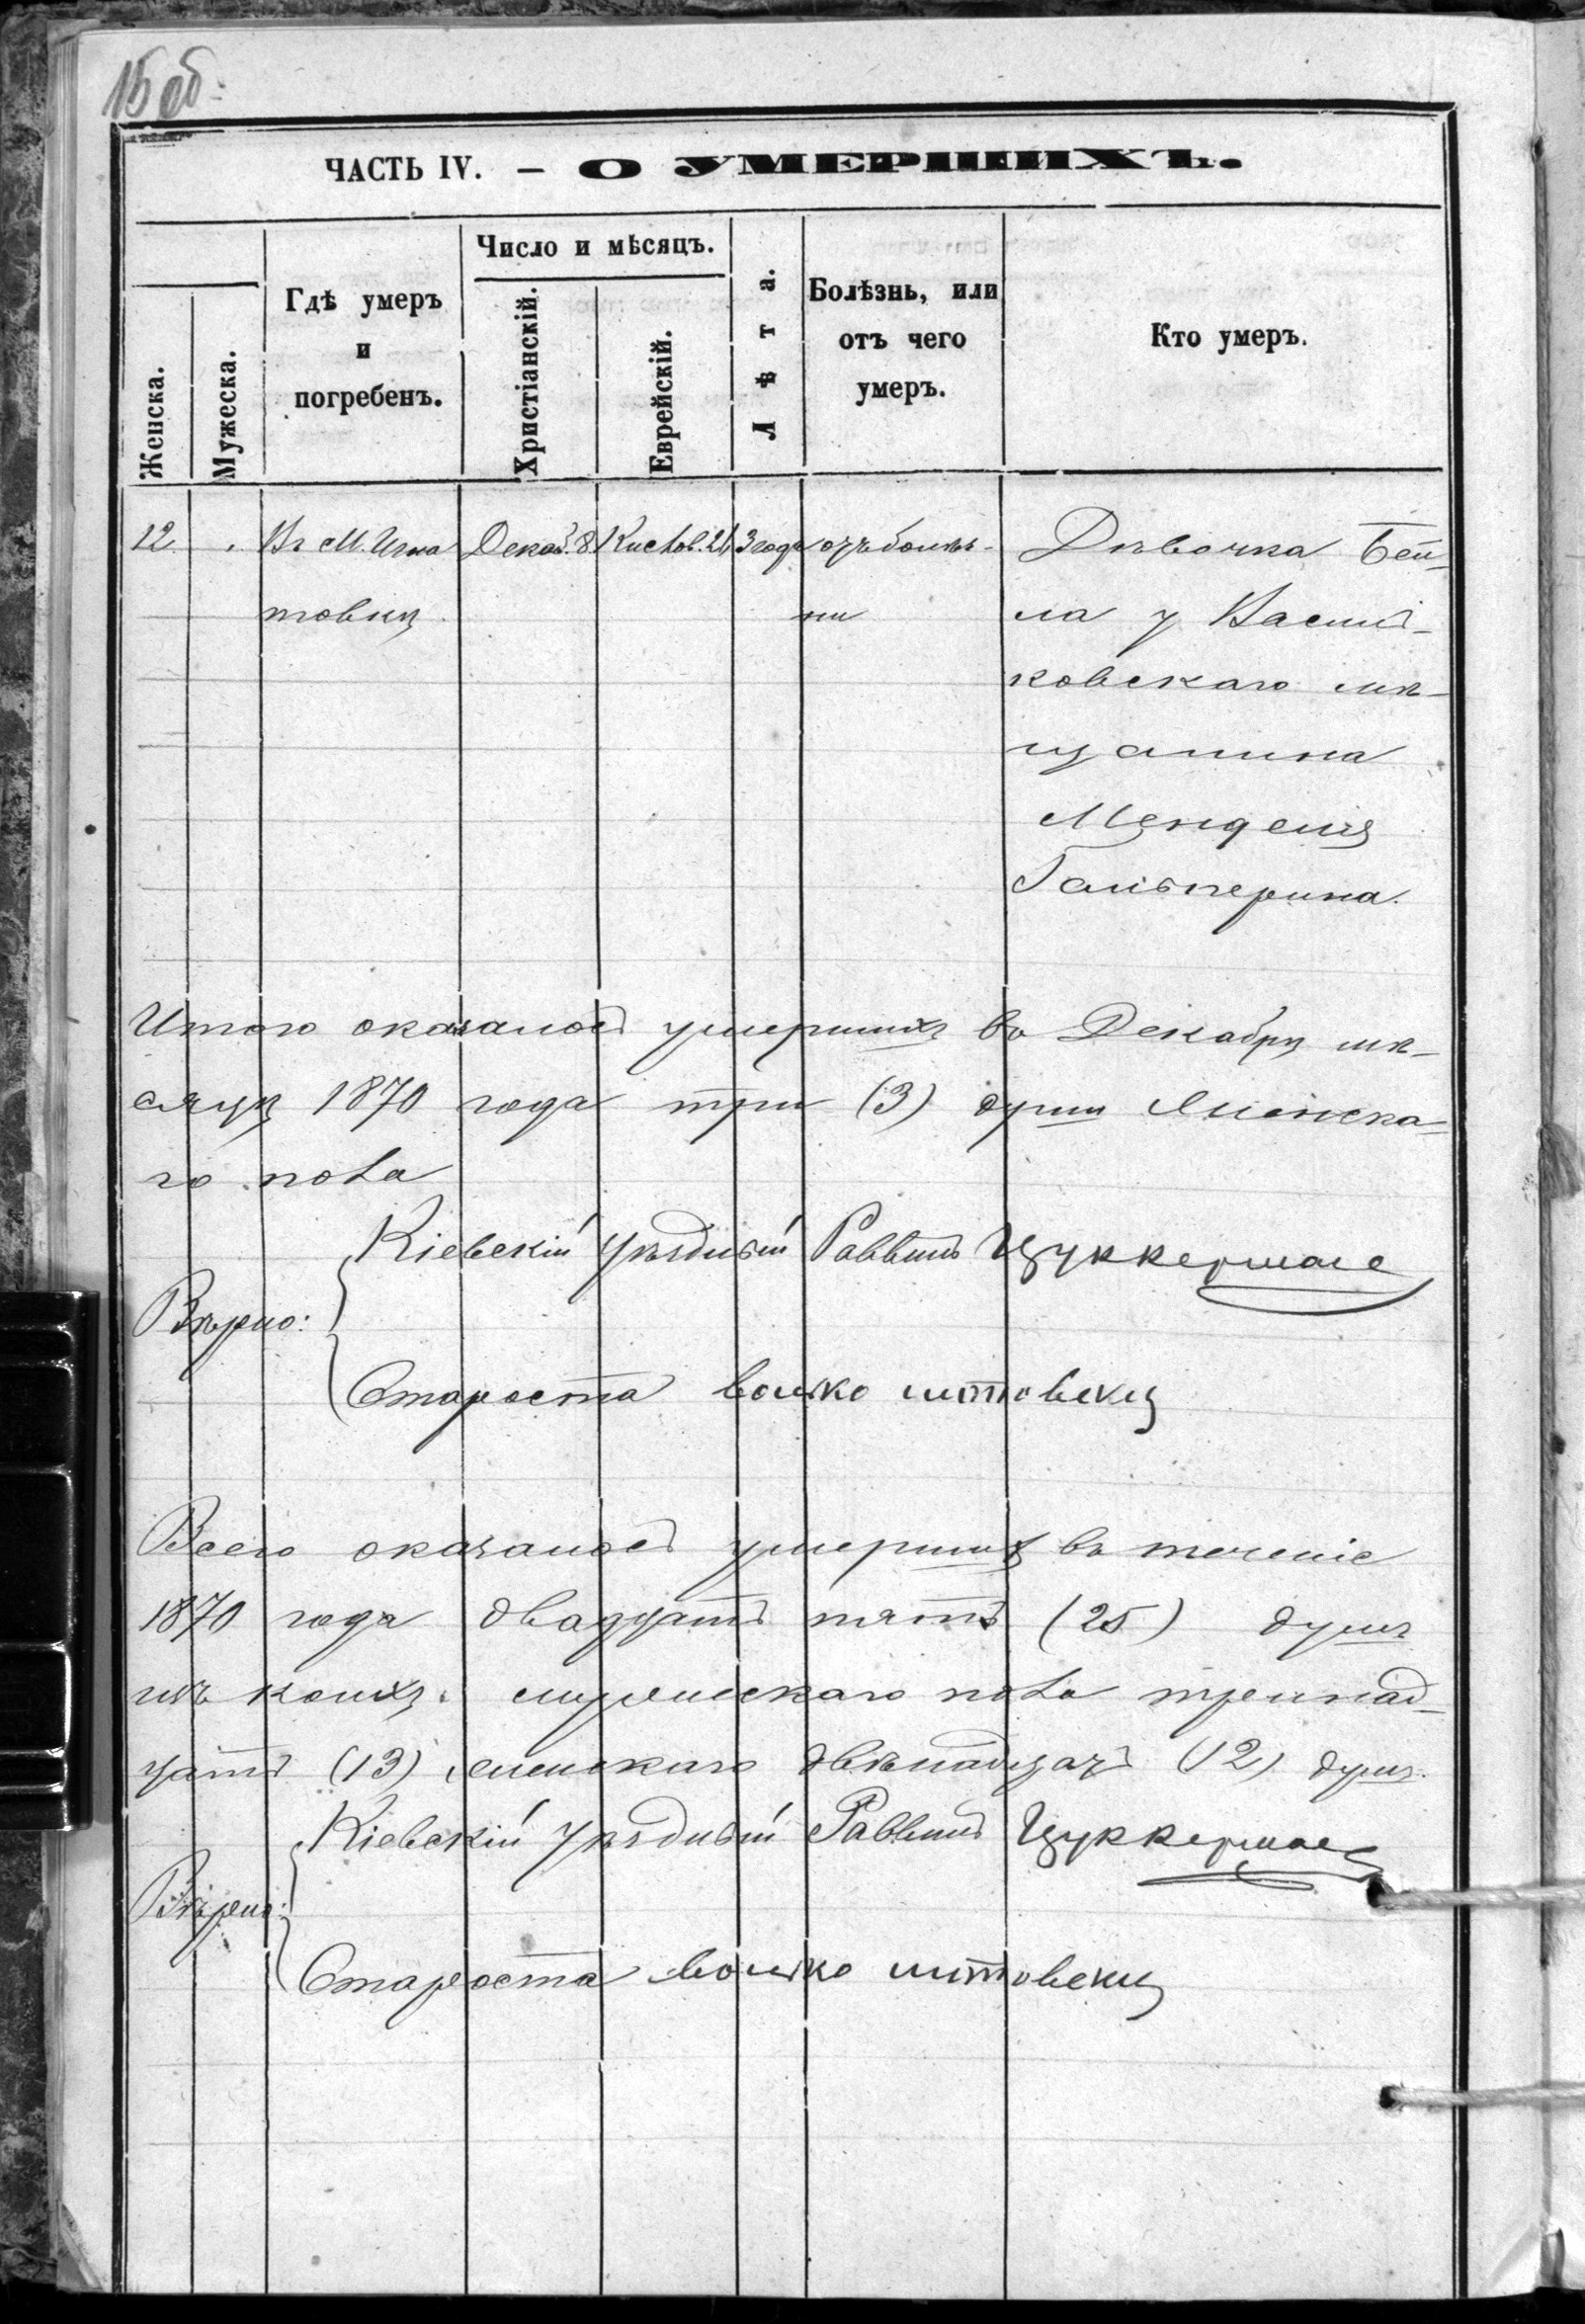 15 об:
ЧАСТЬ IV. — О УМЕРШИХЪ.
Женска.
Мужеска.
Гдѣ умеръ
и
погребенъ.
Число и мѣсяцъ.
Христіанскій.
Еврейскій.
Лѣта.
Болѣзнь, или
отъ чего
умеръ.
Кто умеръ.
12 Въ М. Игна Декаб. 8 Кислов. 21 3 года отъ болѣз- Дѣвочка Бей-
товки ни ла у Василь-
ковскаго мѣ-
щанина
Менделя
Гальперина.
Итого оказалось умершихъ въ Декабрѣ мѣ-
сяцѣ 1870 года три (3) души Женска-
го пола
Кіевскій Уѣздный Раввинъ Цуккерман
Вѣрно:
Староста волько литовски
Всего оказалось умершихъ въ теченіе
1870 года двадцать пять (25) душъ
изъ коихъ мужескаго пола тринад-
цать (13) женскаго двѣнадцать (12) душъ.
Кіевскій Уѣздный Раввинъ Цуккерман
Вѣрно:
Староста волько литовски